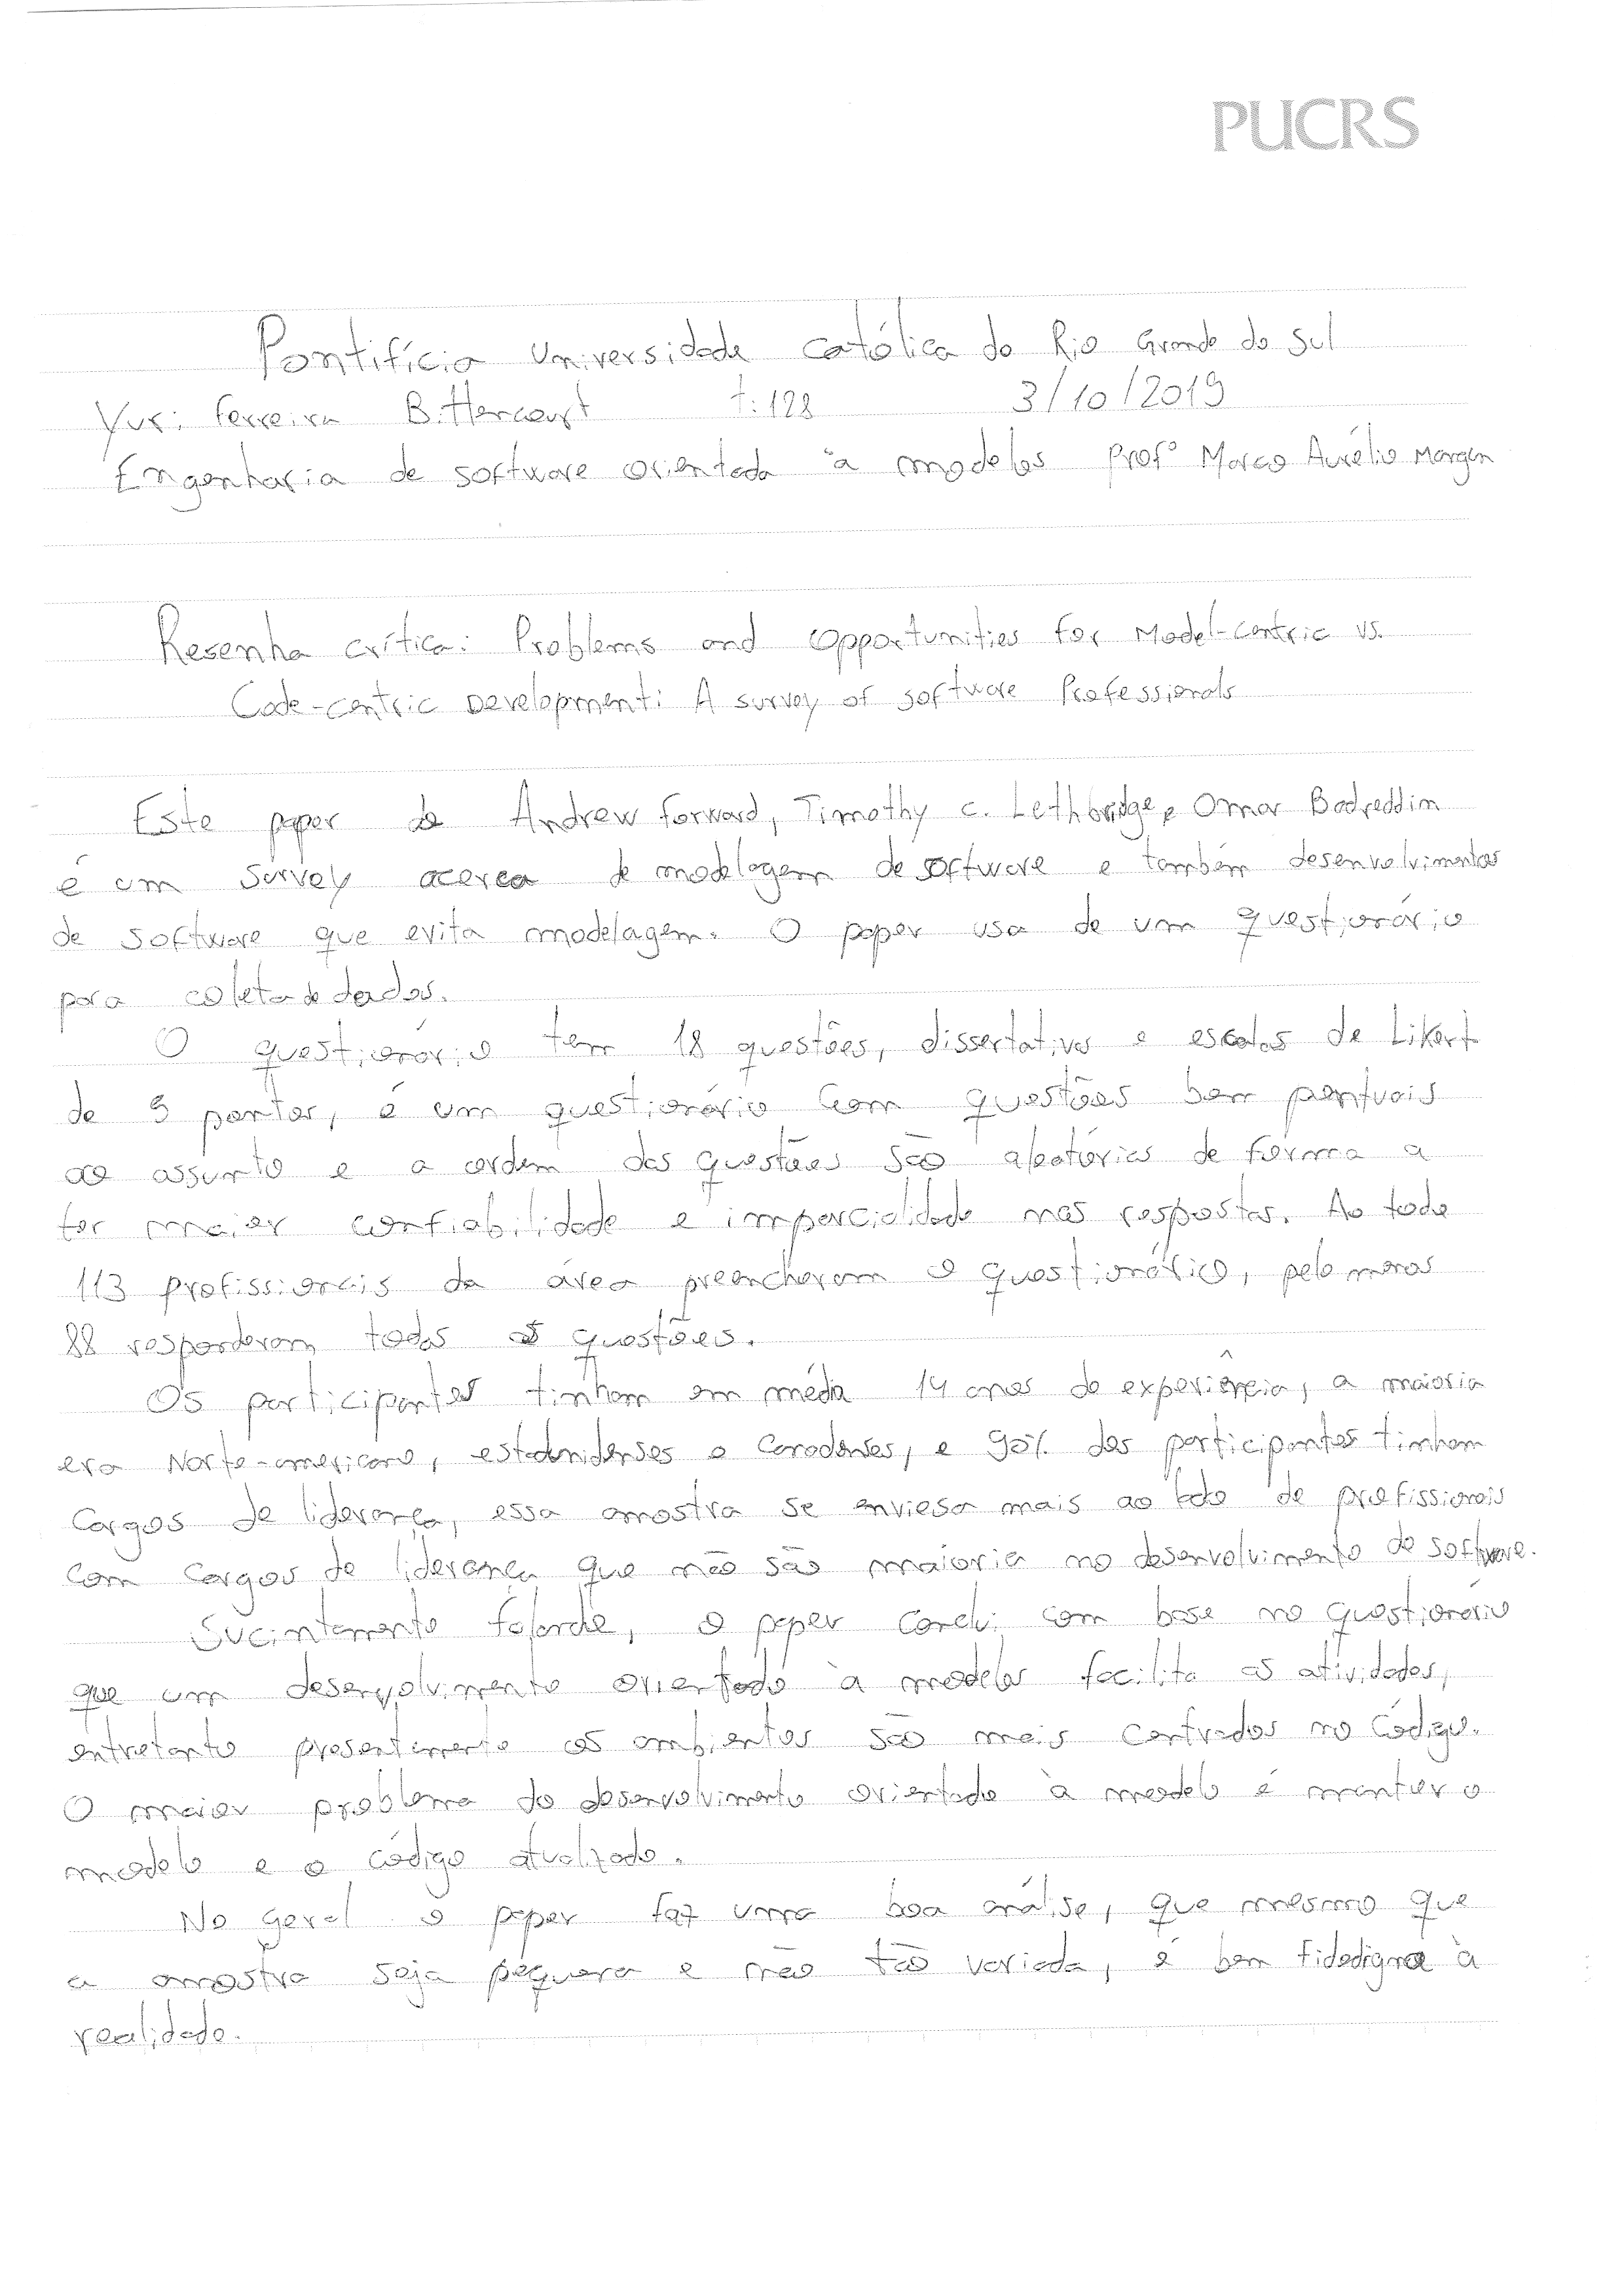 PUCRS
Pontifícia Universidade Católica do Rio Grande do Sul
Yuri Ferreira Bittencourt t:128 3/10/2019
Engenharia de software orientada à modelos Profº Marco Aurélio
Resenha crítica: Problems and Opportunities for Model-Centric vs.
Code-centric Development: A survey of software Professionals
Este paper de Andrew Forward, Timothy C. Lethbridge e Omar Badreddim
é um survey acerca de modelagem de software e também desenvolvimentos
de software que evita modelagem. O paper usa de um questionário
para coleta de dados.
O questionário tem 18 questões, dissertativa e escalas de Likert
de 5 pontos, é um questionário com questões bem pontuais
ao assunto e a ordem das questões são aleatórias de forma a
ter maior confiabilidade e imparcialidade nas respostas. Ao todo
113 profissionais da área preencheram o questionário, pelo menos
88 responderam todas as questões.
Os participantes tinham em média 14 anos de experiência, a maioria
era Norte-americano, estadunidenses e canadenses, e 90% dos participantes tinham
cargos de liderança, essa amostra se enviesa mais ao lado de profissionais
com cargos de liderança que não são maioria no desenvolvimento de software.
Sucintamente falando, o paper conclui com base no questionário
que um desenvolvimento orientado à modelos facilita as atividades,
entretanto presentemente os ambientes são mais centrados no código.
O maior problema do desenvolvimento orientado à modelo é manter o
modelo e o código atualizado.
No geral o paper faz uma boa análise, que mesmo que
a amostra seja pequena e não tão variada, é bem fidedigna à
realidade.